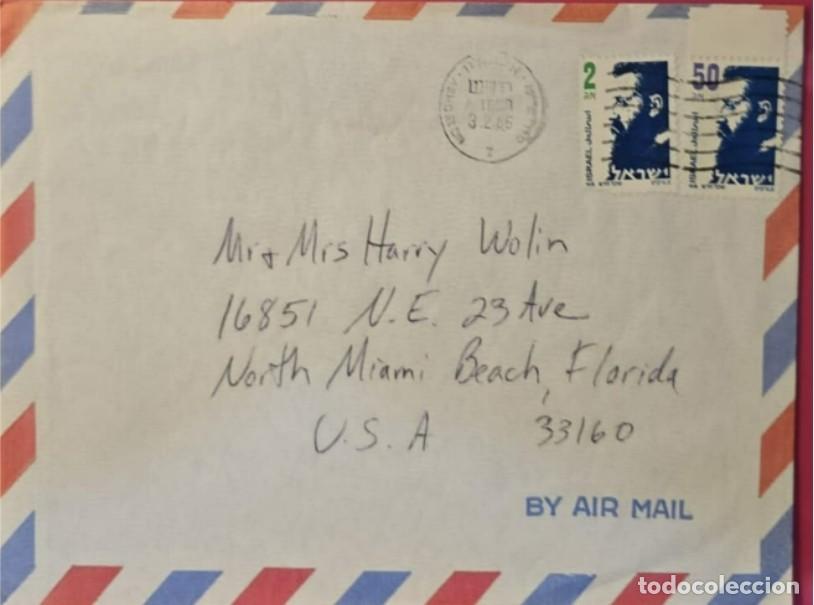 2
50
ISRAEL
ISRAEL
ישראל
ישראל
Mr & Mrs Harry Wolin
16851 N.E. 23 Ave
North Miami Beach, Florida
U.S.A 33160
BY AIR MAIL
todocoleccion